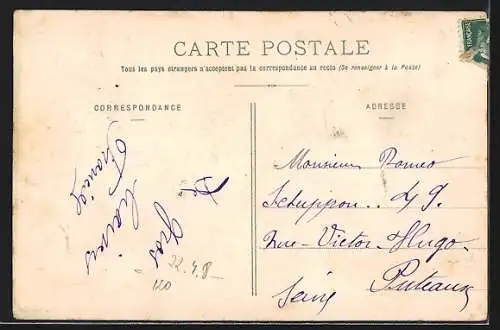 CARTE POSTALE
Tous les pays étrangers n'acceptent pas la correspondance au recto (Se renseigner à la Poste)
CORRESPONDANCE
ADRESSE
Francis
Gros
22.4.8
Monsieur Romeo
49.
Rue-Victor-Hugo.
Puteaux
Seine